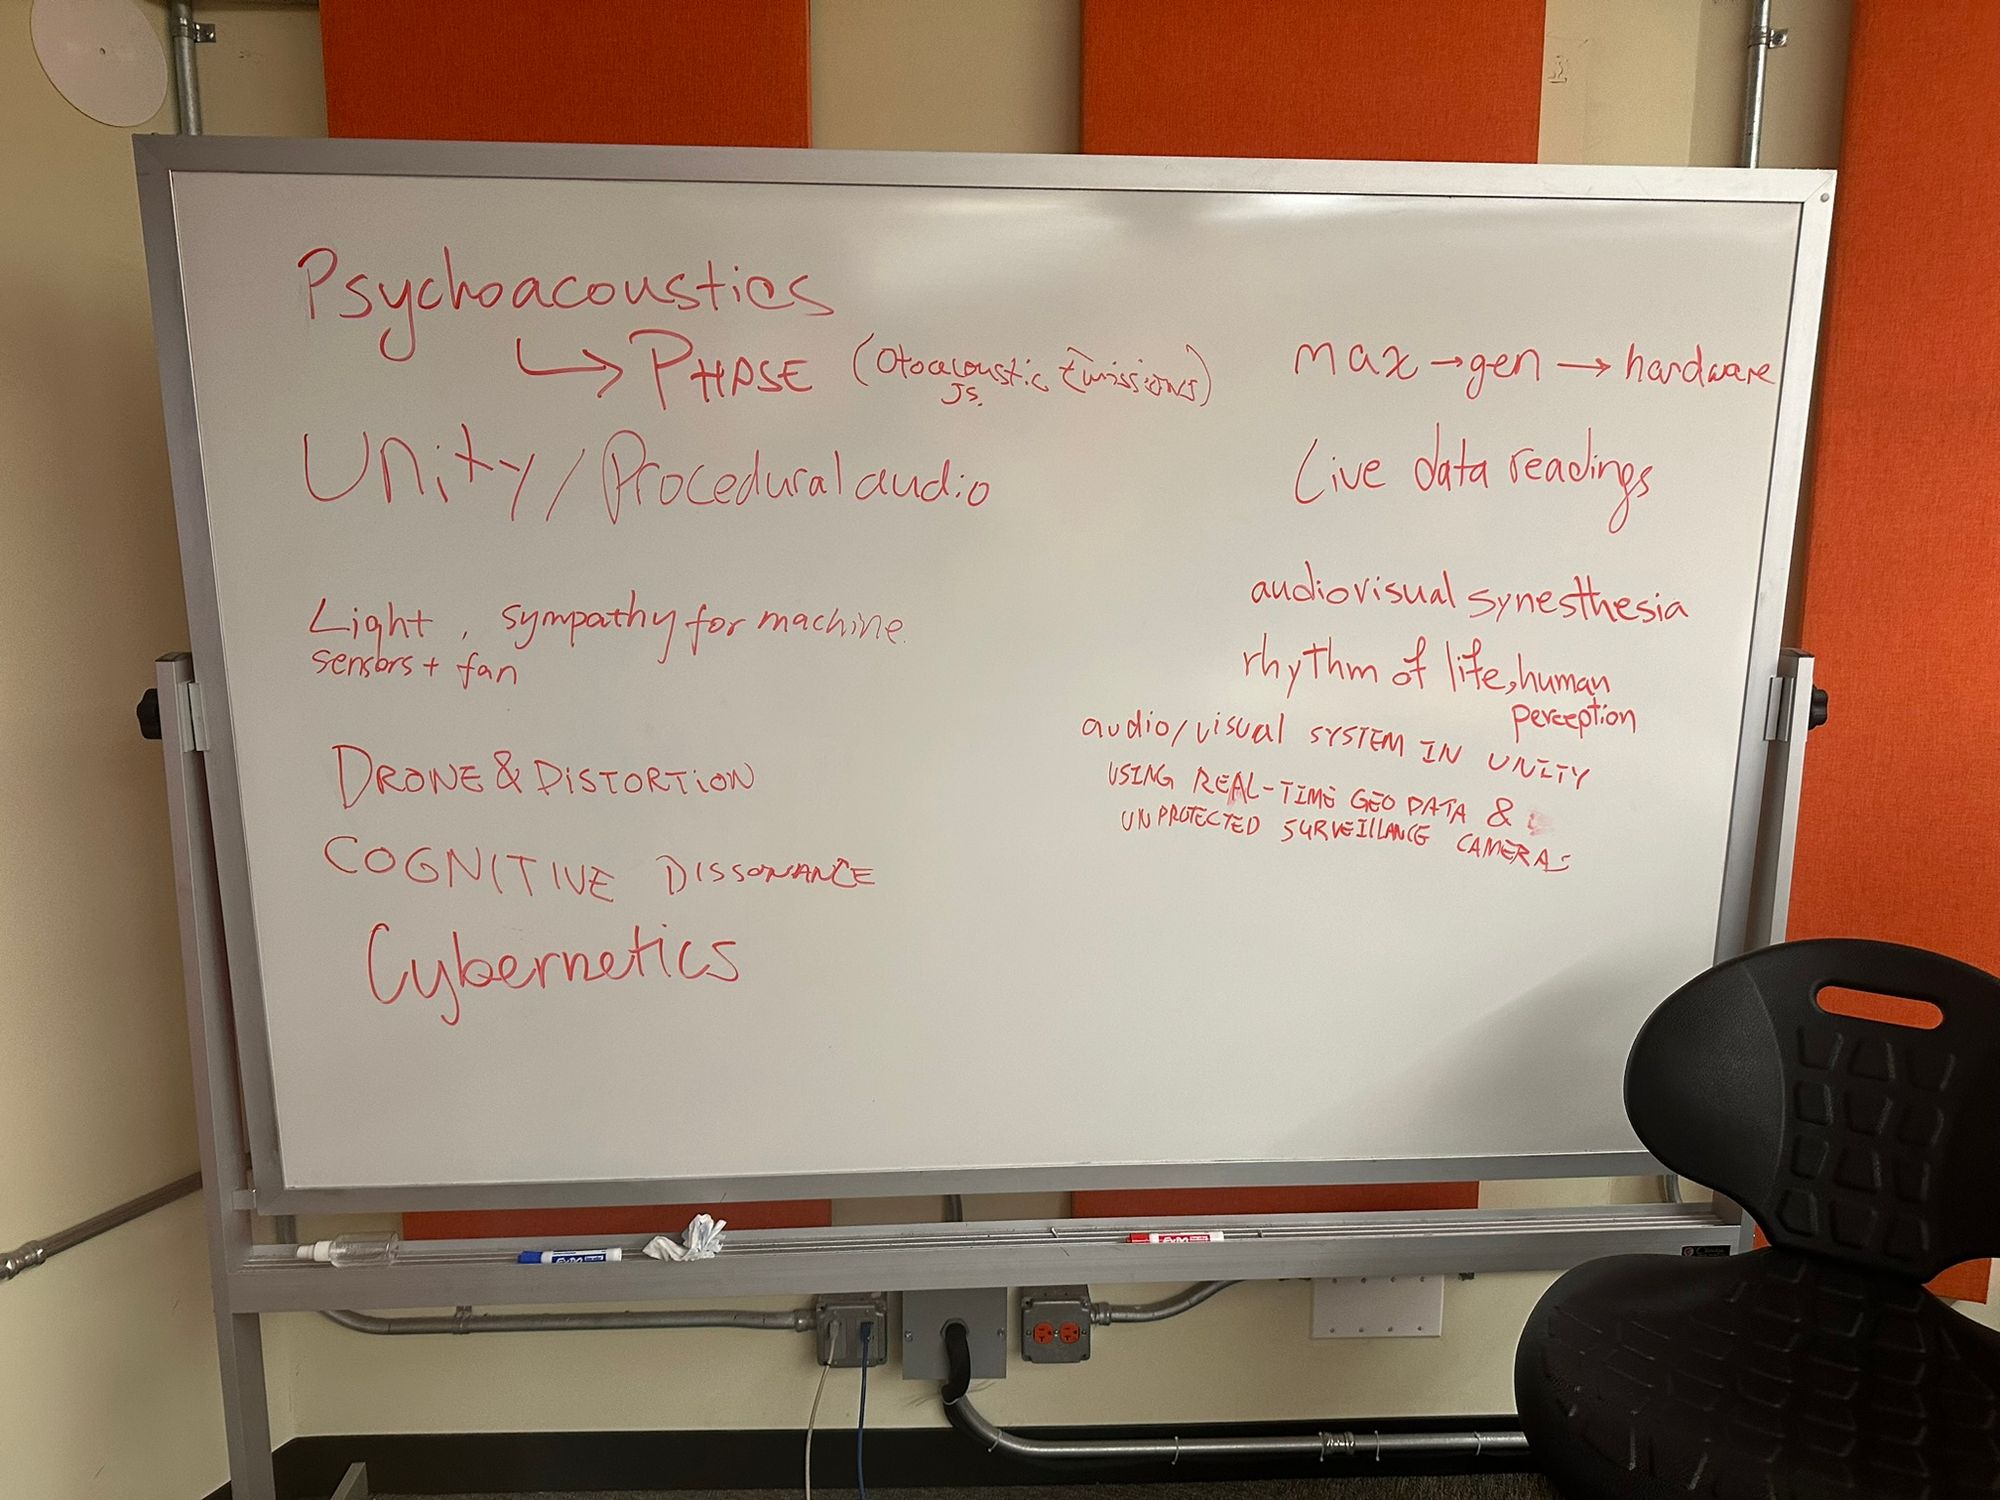 Psychoacoustics
↳ PHASE (Otoacoustic Emissions)
JS.
Unity/Procedural audio
Light, sympathy for machine.
sensors + fan
DRONE & DISTORTION
COGNITIVE DISSONANCE
Cybernetics
max → gen → hardware
Live data readings
audiovisual synesthesia
rhythm of life, human
perception
audio/visual SYSTEM IN UNITY
USING REAL-TIME GEO DATA &
UNPROTECTED SURVEILLANCE CAMERAS
EXPO